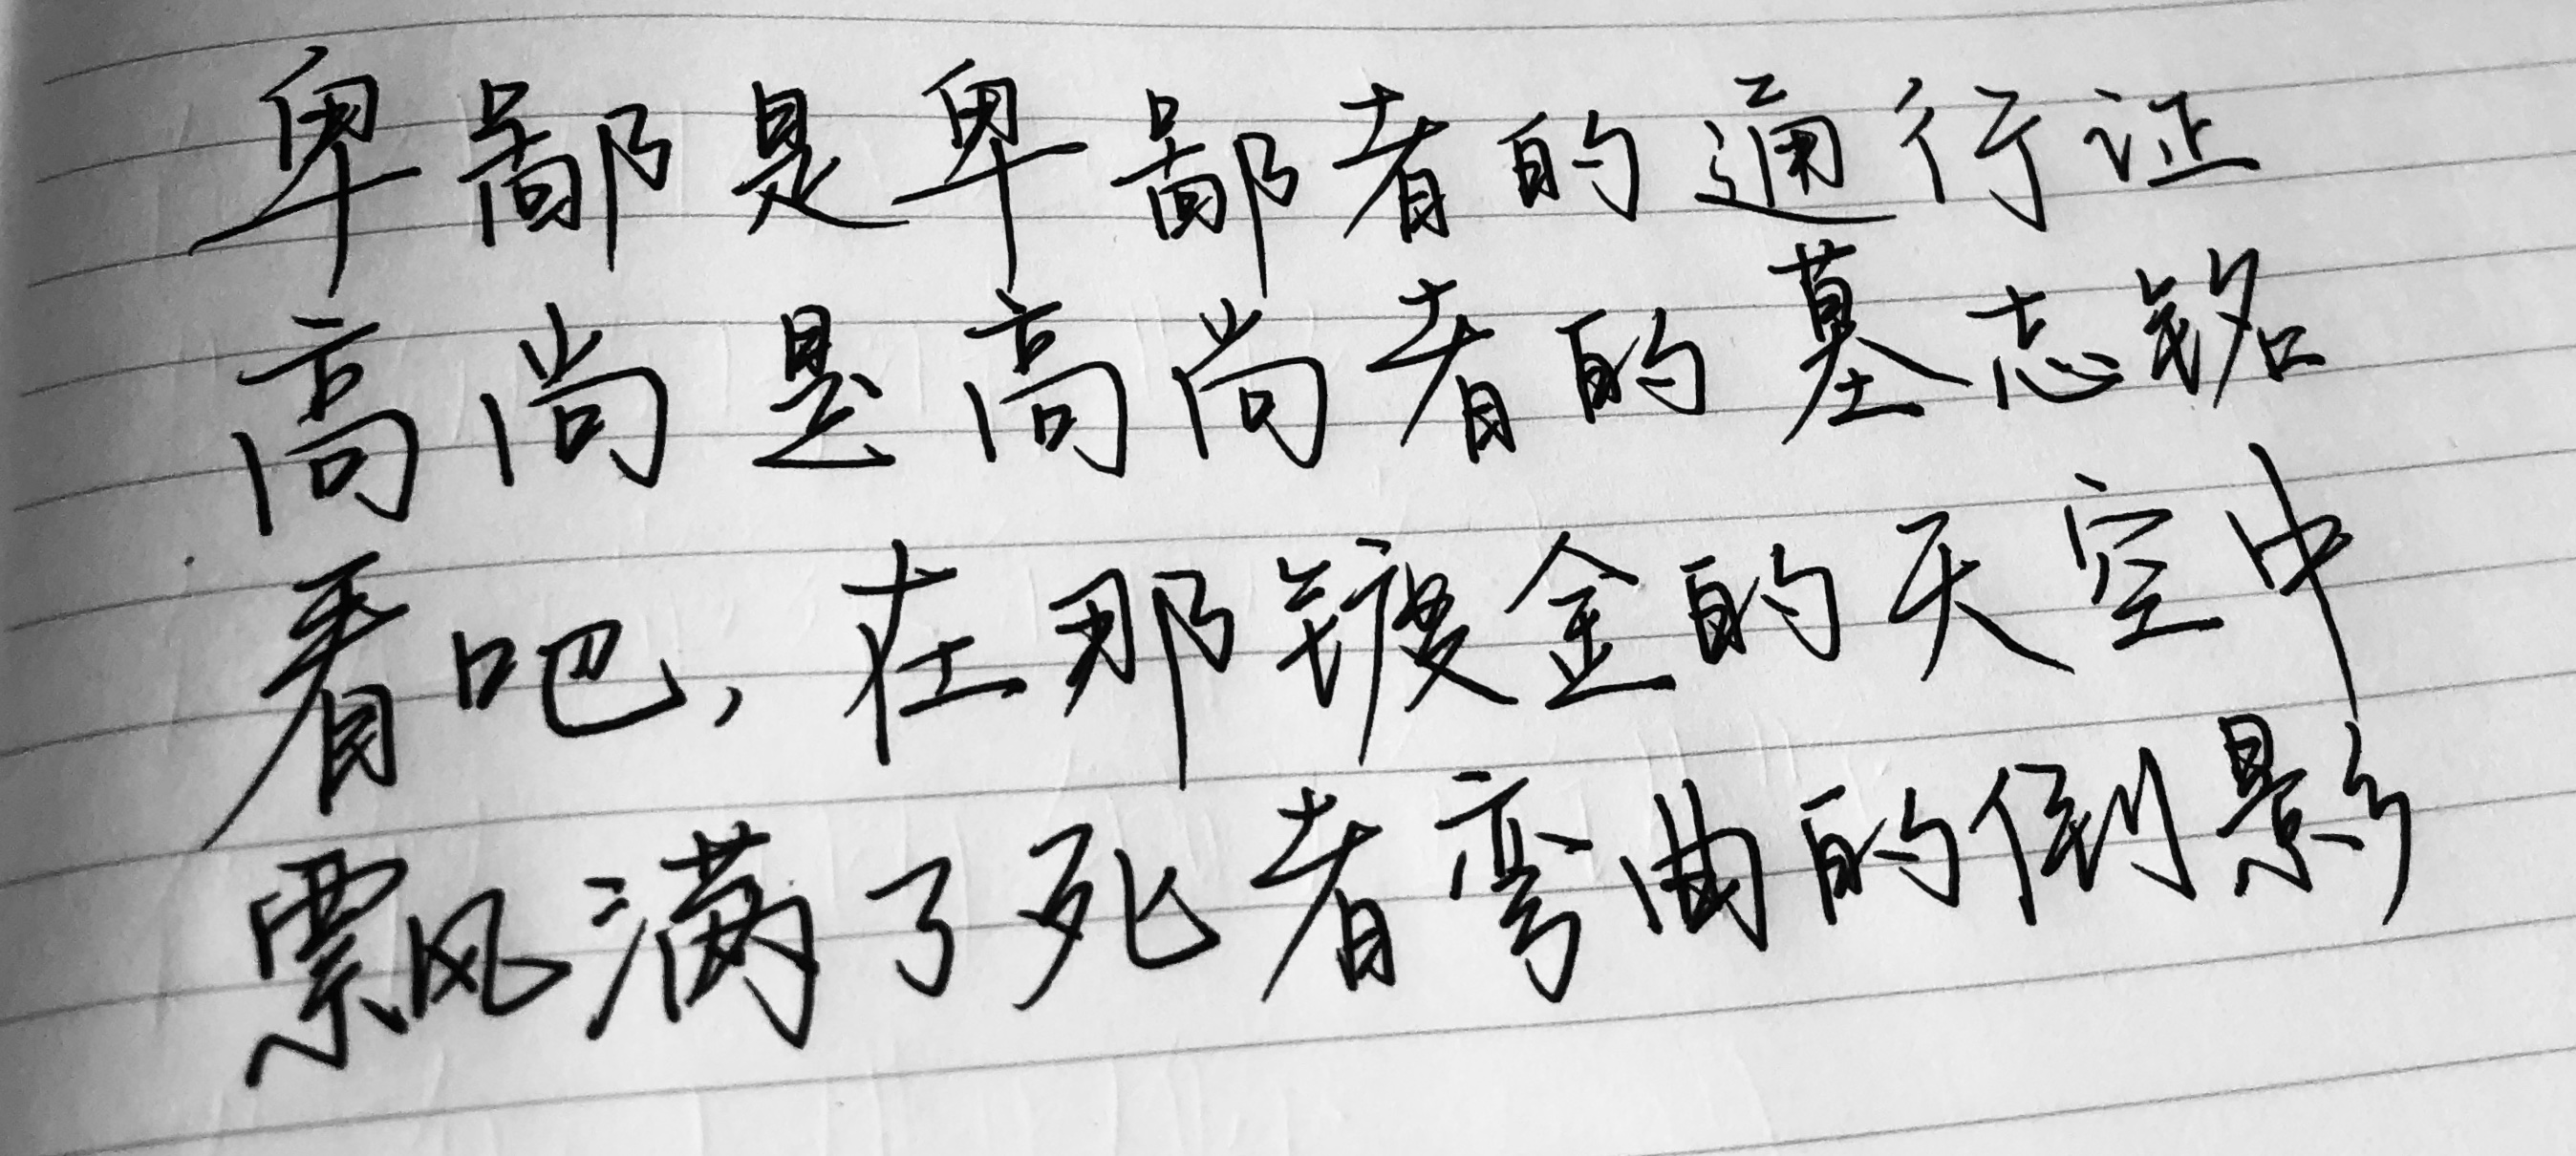 卑鄙是卑鄙者的通行证
高尚是高尚者的墓志铭
看吧，在那镀金的天空中
飘满了死者弯曲的倒影